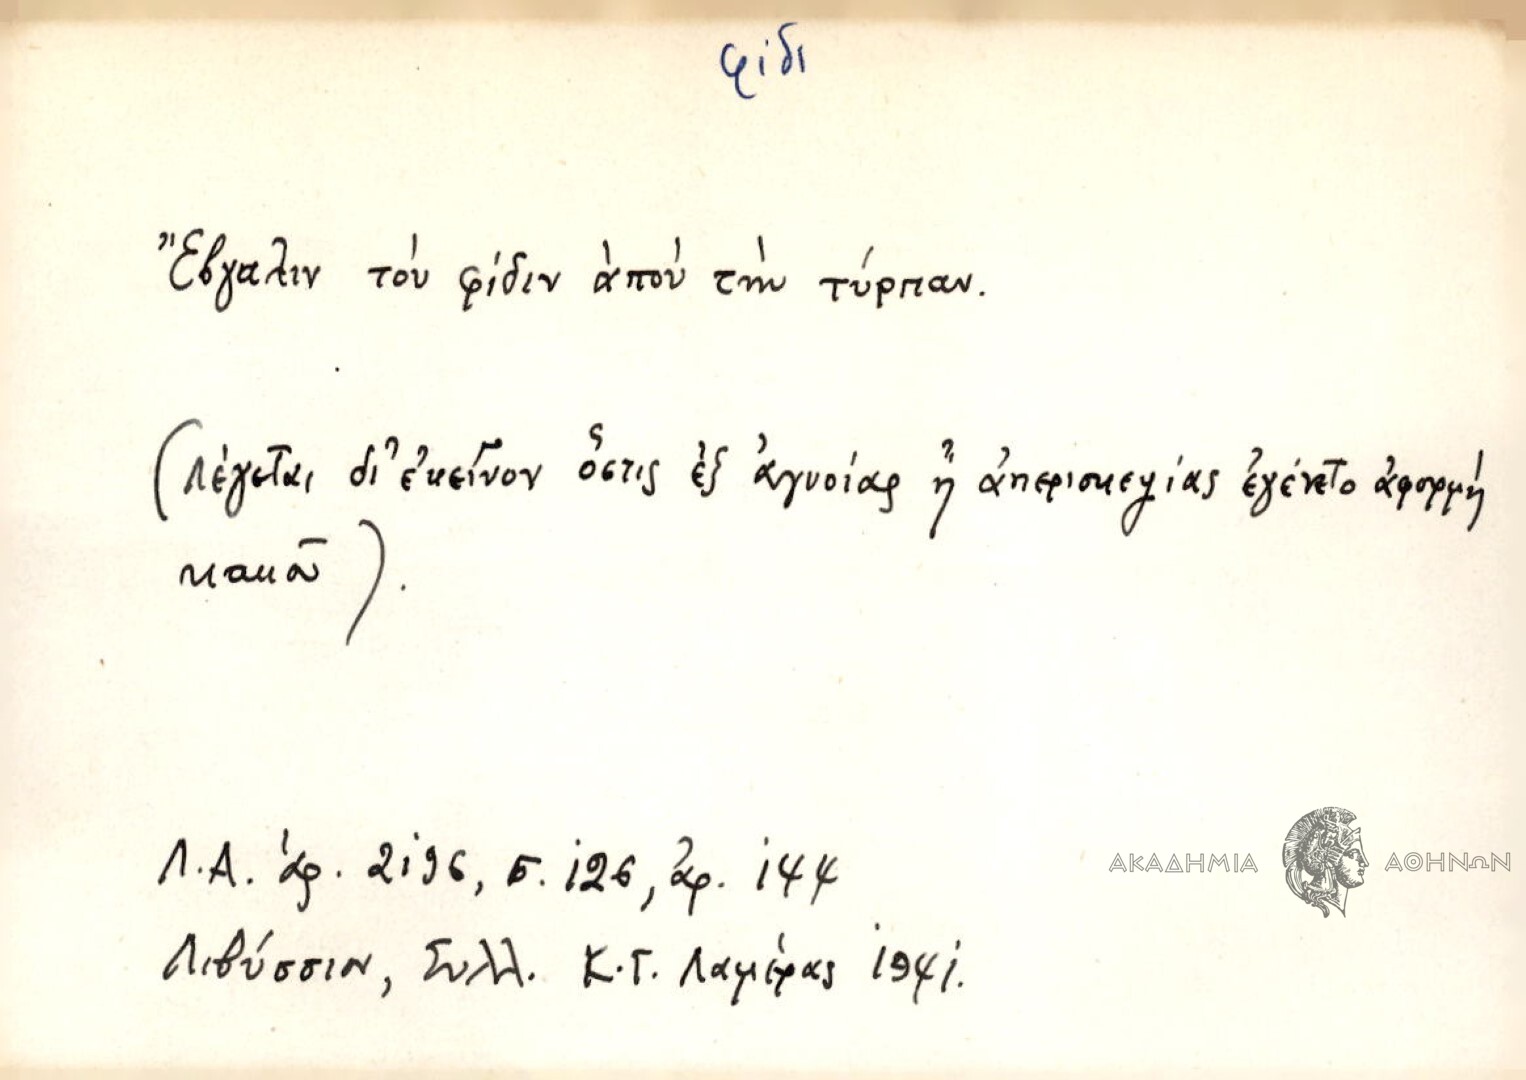 φίδι
Ἔβγαλιν τὸυ φίδιν ἀποὺ τὴν τύρπαν.
(Λέγεται δι' ἐκεῖνον ὅστις ἐξ ἀγνοίας ἢ ἀπερισκεψίας ἐγένετο ἀφορμὴ
κακοῦ).
Λ.Α. ἀρ. 2196, σ. 126, ἀρ. 144
Λιβύσσιον, Συλλ. Κ.Γ. Λαμέρας 1941.
ΑΚΑΔΗΜΙΑ ΑΘΗΝΩΝ